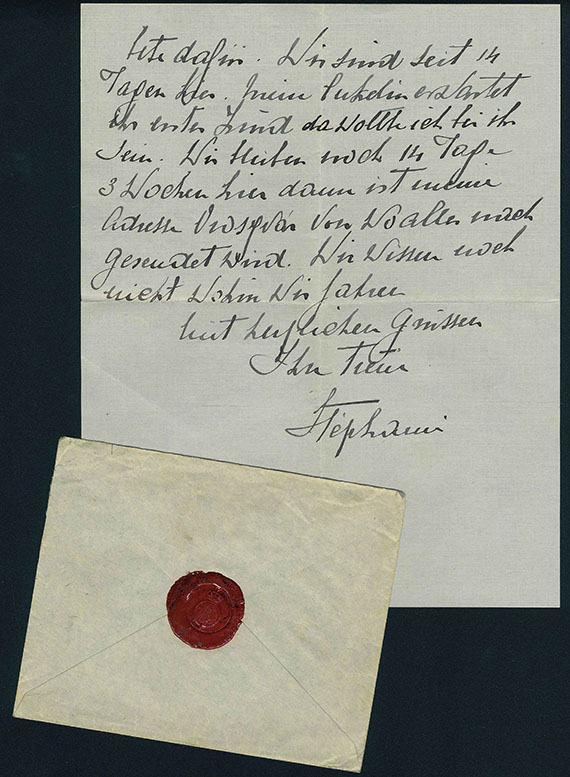 bete dafür. Wir sind seit 14
Tagen hier. Meine Enkelin erwartet
ihr erstes Kind da wollte ich bei ihr
sein. Wir bleiben noch 14 Tage
3 Wochen hier dann ist meine
Adresse Oroszvár von wo alles nach
gesendet wird. Wir wissen noch
nicht wohin wir fahren
mit herzlichen Grüssen
Ihre treue
Stéphanie